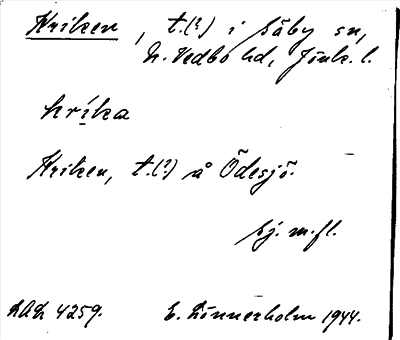 Kriken, t.(?) i Säby sn,
N. Vedbo hd, Jönk. l.
kríka
Kriken, t.(?) å Ödesjö.
Sj. m. fl.
LAL 4259. E. Linnerholm 1944.